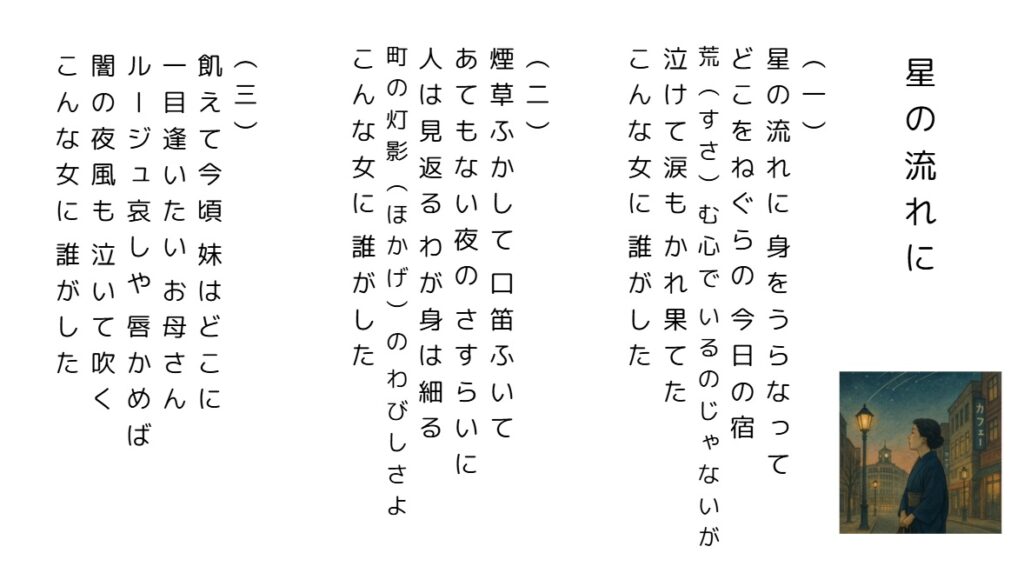 星の流れに
（一）
星の流れに 身をうらなって
どこをねぐらの 今日の宿
荒（すさ）む心で いるのじゃないが
泣けて涙も かれ果てた
こんな女に 誰がした
（二）
煙草ふかして 口笛ふいて
あてもない夜の さすらいに
人は見返る わが身は細る
町の灯影（ほかげ）の わびしさよ
こんな女に 誰がした
（三）
飢えて今頃 妹はどこに
一目逢いたい お母さん
ルージュ哀しや 唇かめば
闇の夜風も 泣いて吹く
こんな女に 誰がした
カフェー